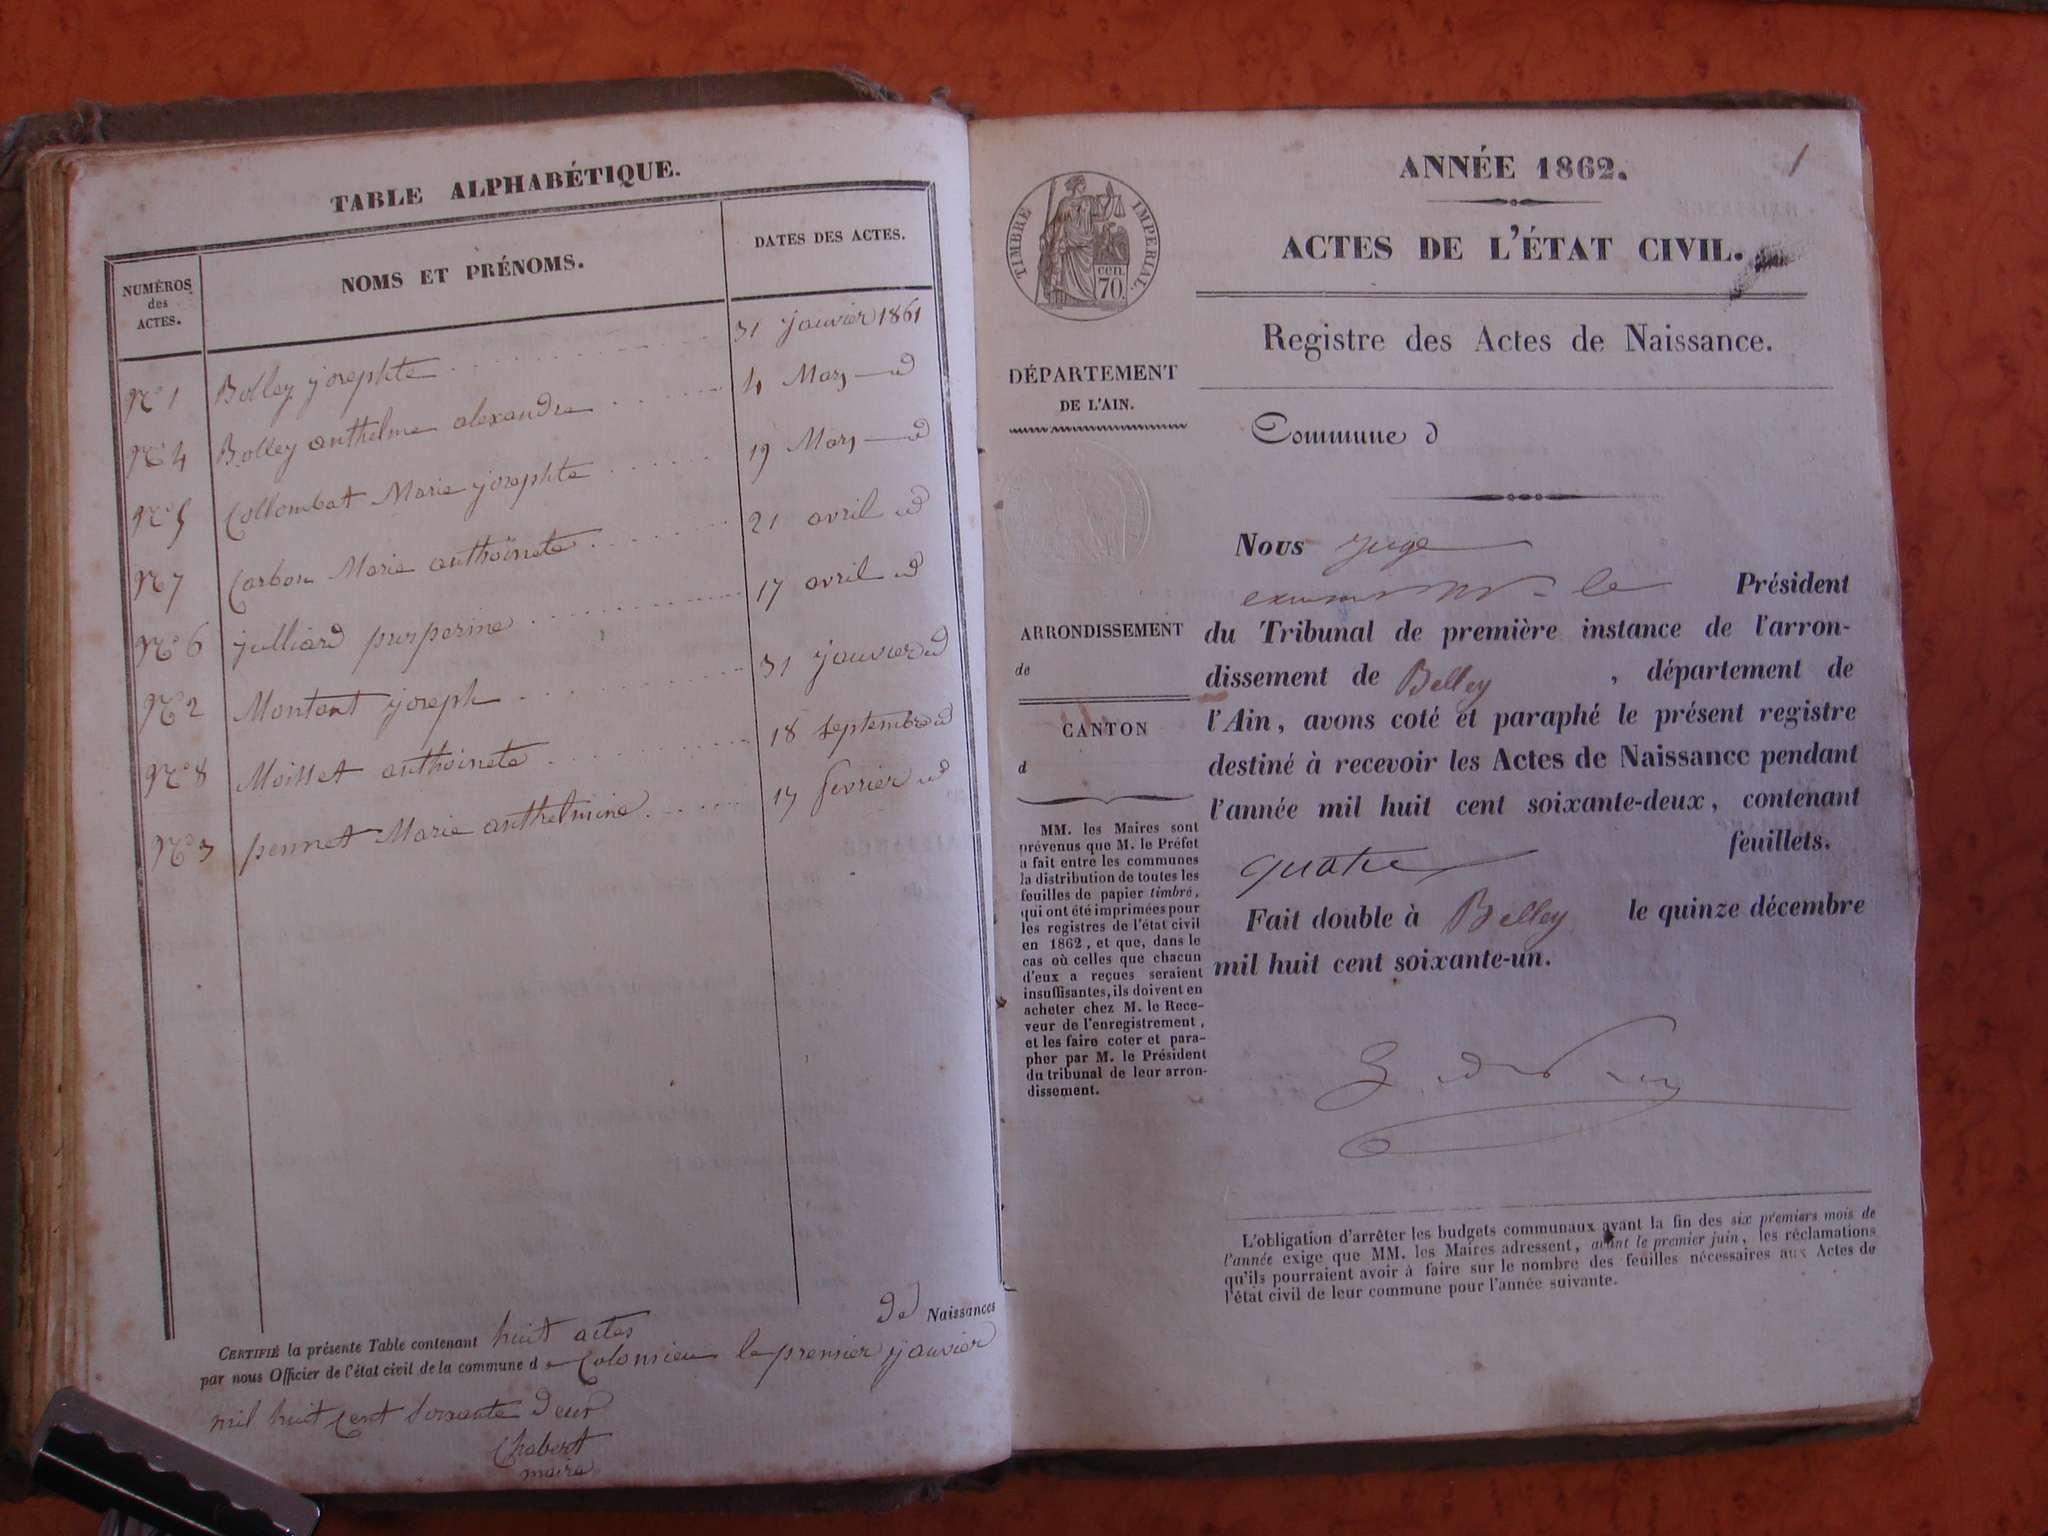 TABLE ALPHABÉTIQUE.
NUMÉROS des ACTES.
NOMS ET PRÉNOMS.
DATES DES ACTES.
N° 1 Bolley josephte 31 janvier 1861
N° 4 Bolley anthelme alexandre 4 Mars id
N° 5 Collombat Marie josephte 19 Mars id
N° 7 Carbon Marie anthoinete 21 avril id
N° 6 julliard purperine 17 avril id
N° 2 Montant joseph 31 janvier id
N° 8 Moisset anthoinete 18 septembre id
N° 3 pennet Marie anthelmine 17 fevrier id
CERTIFIÉ la présente Table contenant huit actes de Naissances
par nous Officier de l'état civil de la commune de Colomieu le premier janvier
mil huit cent soixante deux
Chabert
maire
1
ANNÉE 1862.
ACTES DE L'ÉTAT CIVIL.
TIMBRE IMPERIAL.
cen.
70.
Registre des Actes de Naissance.
DÉPARTEMENT
DE L'AIN.
Commune d
Nous juge
Mr le Président
du Tribunal de première instance de l'arron-
dissement de Belley, département de
l'Ain, avons coté et paraphé le présent registre
destiné à recevoir les Actes de Naissance pendant
l'année mil huit cent soixante-deux, contenant
quatre feuillets.
Fait double à Belley le quinze décembre
mil huit cent soixante-un.
ARRONDISSEMENT
de
CANTON
d
MM. les Maires sont
prévenus que M. le Préfet
a fait entre les communes
la distribution de toutes les
feuilles de papier timbré,
qui ont été imprimées pour
les registres de l'état civil
en 1862, et que, dans le
cas où celles que chacun
d'eux a reçues seraient
insuffisantes, ils doivent en
acheter chez M. le Rece-
veur de l'enregistrement,
et les faire coter et para-
pher par M. le Président
du tribunal de leur arron-
dissement.
L'obligation d'arrêter les budgets communaux avant la fin des six premiers mois de
l'année exige que MM. les Maires adressent, avant le premier juin, les réclamations
qu'ils pourraient avoir à faire sur le nombre des feuilles nécessaires aux Actes de
l'état civil de leur commune pour l'année suivante.